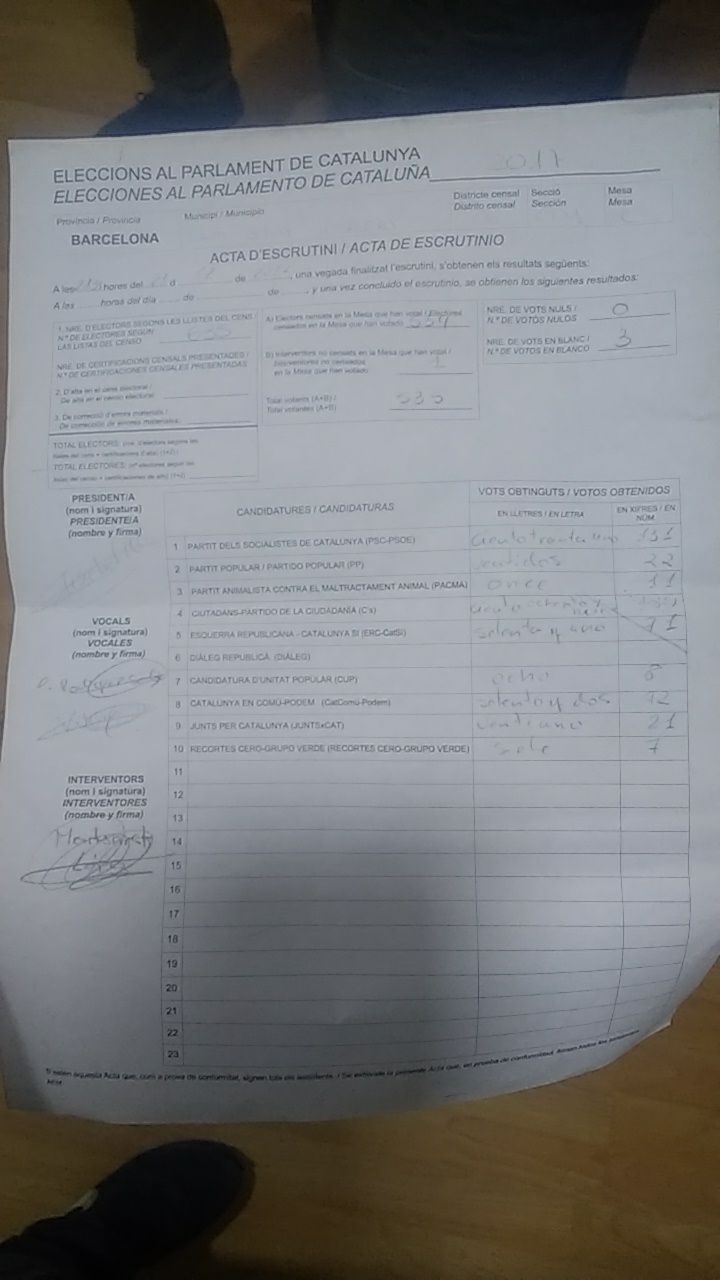 ELECCIONS AL PARLAMENT DE CATALUNYA
ELECCIONES AL PARLAMENTO DE CATALUÑA 2017
Província / Provincia
Municipi / Municipio
Districte censal Secció Mesa
Distrito censal Sección Mesa
BARCELONA
ACTA D'ESCRUTINI / ACTA DE ESCRUTINIO
A les hores del d de , una vegada finalitzat l'escrutini, s'obtenen els resultats següents:
A las horas del día de de , y una vez concluido el escrutinio, se obtienen los siguientes resultados:
1. NRE. D'ELECTORS SEGONS LES LLISTES DEL CENS /
N.º DE ELECTORES SEGÚN
LAS LISTAS DEL CENSO
NRE. DE CERTIFICACIONS CENSALS PRESENTADES /
N.º DE CERTIFICACIONES CENSALES PRESENTADAS
2. D'alta en el cens electoral /
De alta en el censo electoral:
3. De correcció d'errors materials /
De corrección de errores materiales:
TOTAL ELECTORS:
TOTAL ELECTORES:
A) Electors censats en la Mesa que han votat / Electores
censados en la Mesa que han votado 534
B) Interventors no censats en la Mesa que han votat /
Interventores no censados
en la Mesa que han votado 1
Total votants (A+B) /
Total votantes (A+B) 535
NRE. DE VOTS NULS / 0
N.º DE VOTOS NULOS
NRE. DE VOTS EN BLANC / 3
N.º DE VOTOS EN BLANCO
PRESIDENT/A
(nom i signatura)
PRESIDENTE/A
(nombre y firma)
VOCALS
(nom i signatura)
VOCALES
(nombre y firma)
INTERVENTORS
(nom i signatura)
INTERVENTORES
(nombre y firma)
CANDIDATURES / CANDIDATURAS
VOTS OBTINGUTS / VOTOS OBTENIDOS
EN LLETRES / EN LETRA
EN XIFRES / EN NÚM
1 PARTIT DELS SOCIALISTES DE CATALUNYA (PSC-PSOE) 131
2 PARTIT POPULAR / PARTIDO POPULAR (PP) ventidos 22
3 PARTIT ANIMALISTA CONTRA EL MALTRACTAMENT ANIMAL (PACMA) once 11
4 CIUTADANS-PARTIDO DE LA CIUDADANÍA (C's)
5 ESQUERRA REPUBLICANA - CATALUNYA SÍ (ERC-CatSí) setenta y uno 71
6 DIÀLEG REPUBLICÀ (DIÀLEG)
7 CANDIDATURA D'UNITAT POPULAR (CUP) ocho 8
8 CATALUNYA EN COMÚ-PODEM (CatComú-Podem) setenta y dos 72
9 JUNTS PER CATALUNYA (JUNTSxCAT) ventiuno 21
10 RECORTES CERO-GRUPO VERDE (RECORTES CERO-GRUPO VERDE) siete 7
11
12
13
14
15
16
17
18
19
20
21
22
23